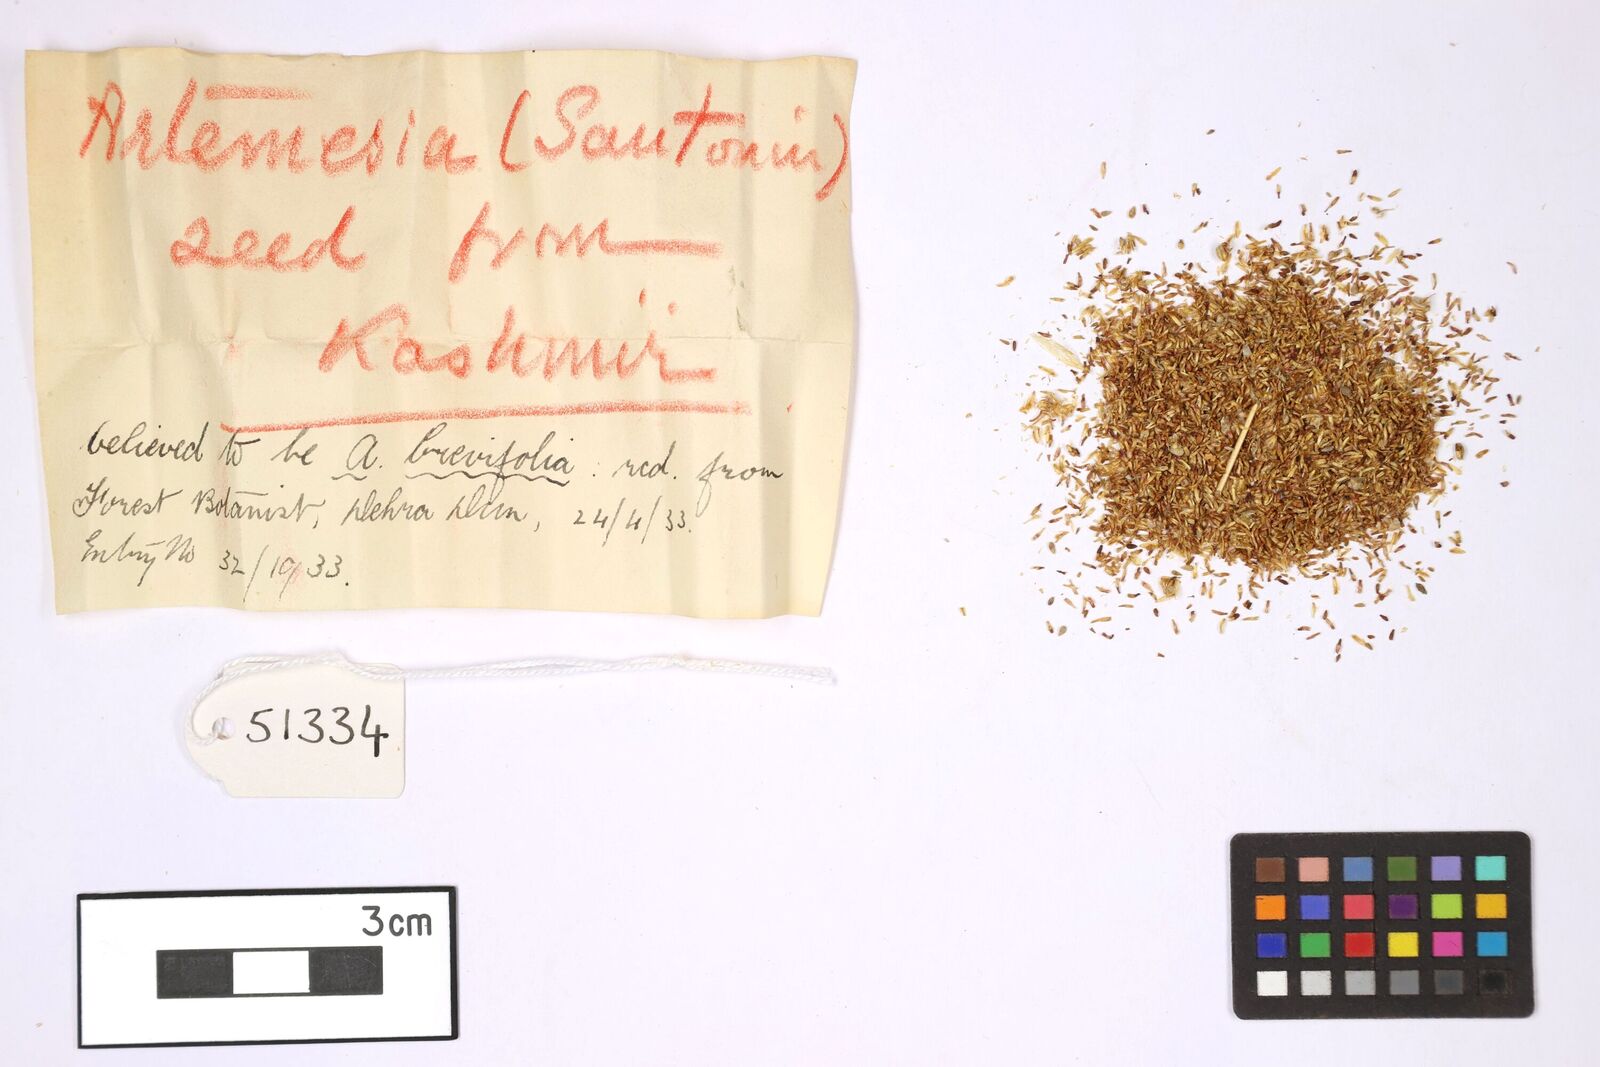 Artemesia (Santonin)
seed from
Kashmir
believed to be A. brevifolia : recd. from
Forest Botanist, Dehra Dun, 24/4/33.
Entry No 32/1933.
51334
3cm